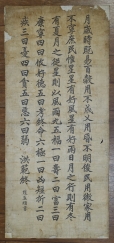 月歲時既易百穀用不成乂用昏不明俊民用微家用
不寧庶民惟星星有好風星有好雨日月之行則有冬
有夏月之從星則以風雨九五福一曰壽二曰富三曰
康寧四曰攸好德五曰考終命六極一曰凶短折二曰
疾三曰憂四曰貧五曰惡六曰弱 洪範終